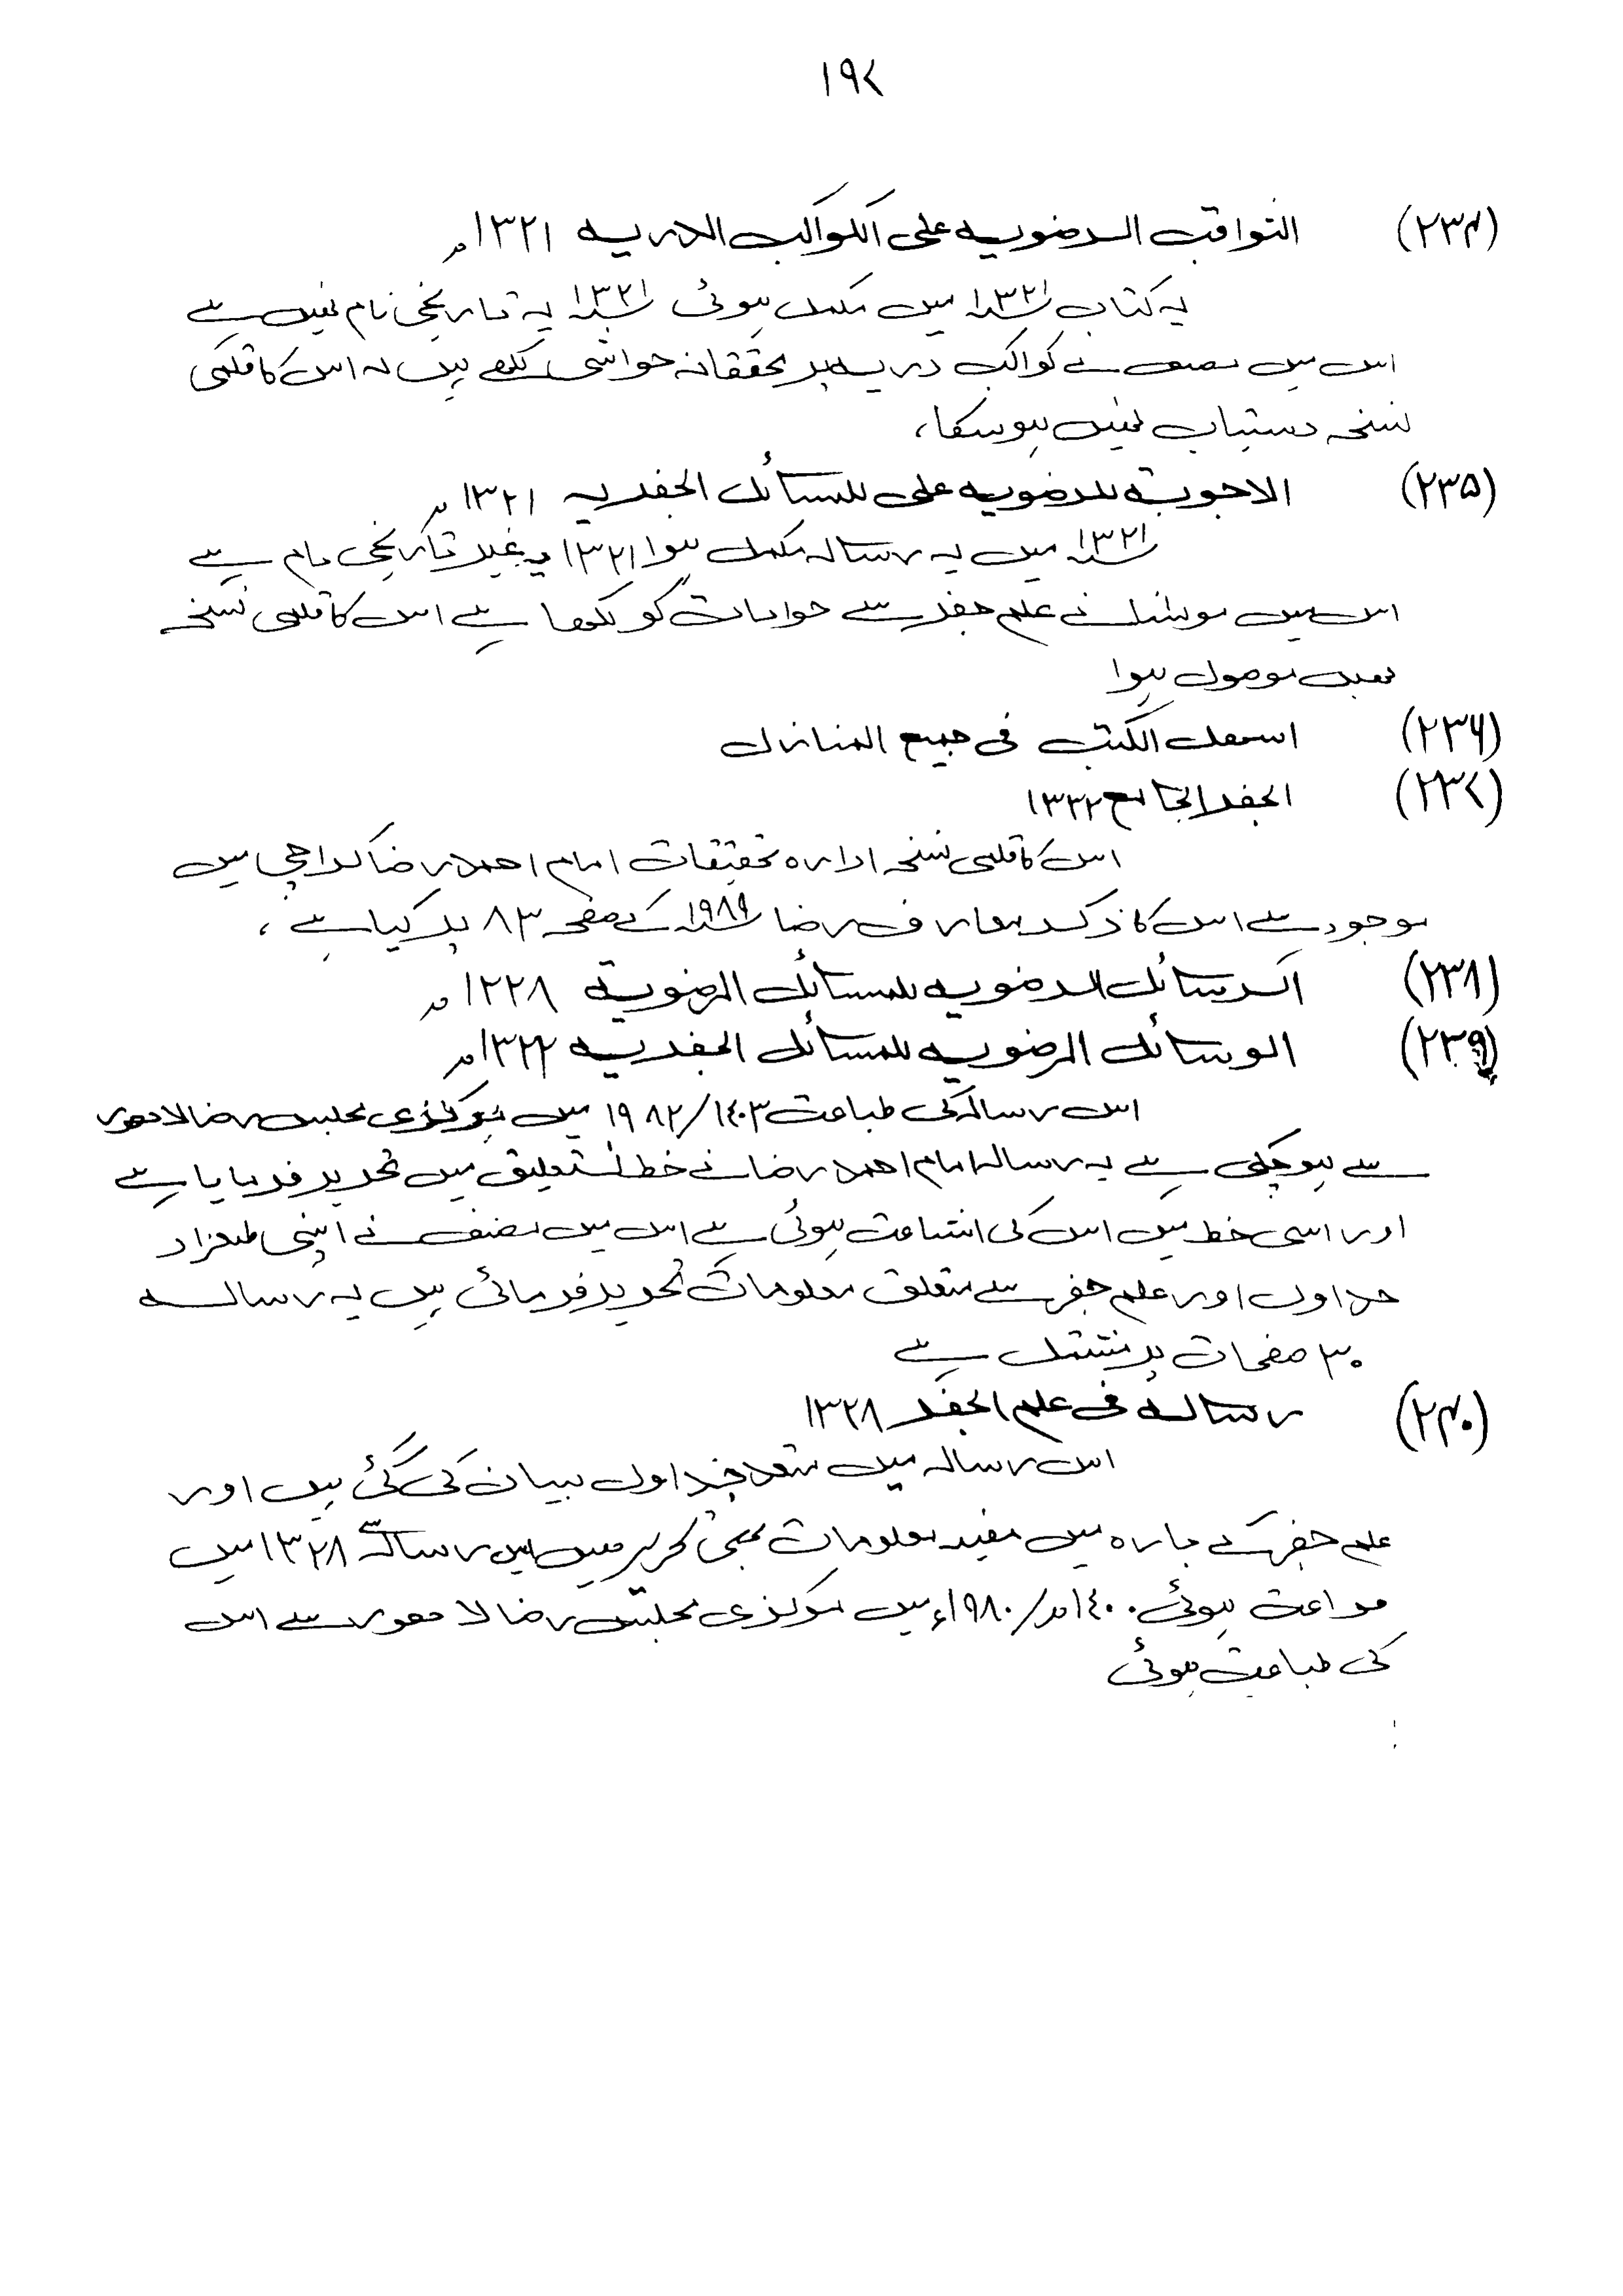 ۱۹۷
(۲۳۴) الثواقب الرضویہ علی الکواکب الدریہ ۱۳۲۱ھ
یہ کتاب ۱۳۲۱ میں مکمل ہوئی ۱۳۲۱ یہ تاریخی نام نہیں ہے
اس میں مصنف نے کواکب دریہ پر محققانہ حواشی لکھے ہیں اس کا قلمی
نسخہ دستیاب نہیں ہو سکا،
(۲۳۵) الاجوبۃ الرضویہ علی المسائل الجفریہ ۱۳۲۱ھ
۱۳۲۱ میں یہ رسالہ مکمل ہوا ۱۳۲۱ یہ غیر تاریخی نام ہے
اس میں نے علم جفر سے جوابات کو لکھا ہے اس کا قلمی نسخہ
نہیں موصول ہوا
(۲۳۶) اسھل الکتب فی جمیع المنازل
(۲۳۷) الجفر الجامع ۱۳۳۲
اس کا قلمی نسخہ ادارہ تحقیقات امام احمد رضا کراچی میں
موجود ہے اس کا ذکر معارف رضا ۱۹۸۹ کے صفحہ ۸۳ پر کیا ہے،
(۲۳۸) الرسائل الرضویہ للمسائل المرضویۃ ۱۲۲۸ھ
(۲۳۹) الوسائل المرضویہ للمسائل الجفریہ ۱۳۲۲ھ
اس رسالہ کی طباعت ۱۴۰۳/۱۹۸۲ میں مرکزی مجلس رضا لاہور
سے ہو چکی ہے یہ رسالہ امام احمد رضا نے خط نستعلیق میں تحریر فرمایا ہے
اور اسی خط میں اس کی اشاعت ہوئی ہے اس میں مصنف نے اپنی طبعزاد
جداول اور علم جفر سے متعلق معلومات تحریر فرمائی ہیں یہ رسالہ
۳۰ صفحات پر مشتمل ہے
(۲۴۰) رسالہ فی علم الجفر ۱۳۲۸
اس رسالہ میں متعدد جداول بیان کی گئی ہیں اور
علم جفر کے بارہ میں مفید معلومات بھی تحریر ہیں رسالہ ۱۳۲۸ میں
فراغت ہوئی ۱۴۰۰ھ/۱۹۸۰ء میں مرکزی مجلس رضا لاہور سے اس
کی طباعت ہوئی